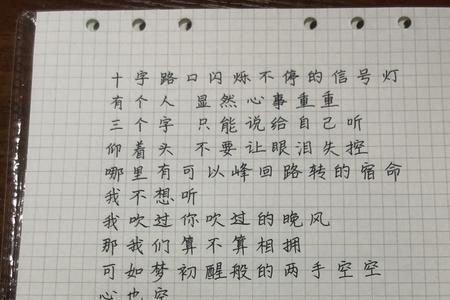 十字路口闪烁不停的信号灯
有个人 显然心事重重
三个字 只能说给自己听
仰着头 不要让眼泪失控
哪里有可以峰回路转的宿命
我不想听
我吹过你吹过的晚风
那我们算不算相拥
可如梦初醒般的两手空空
心也空